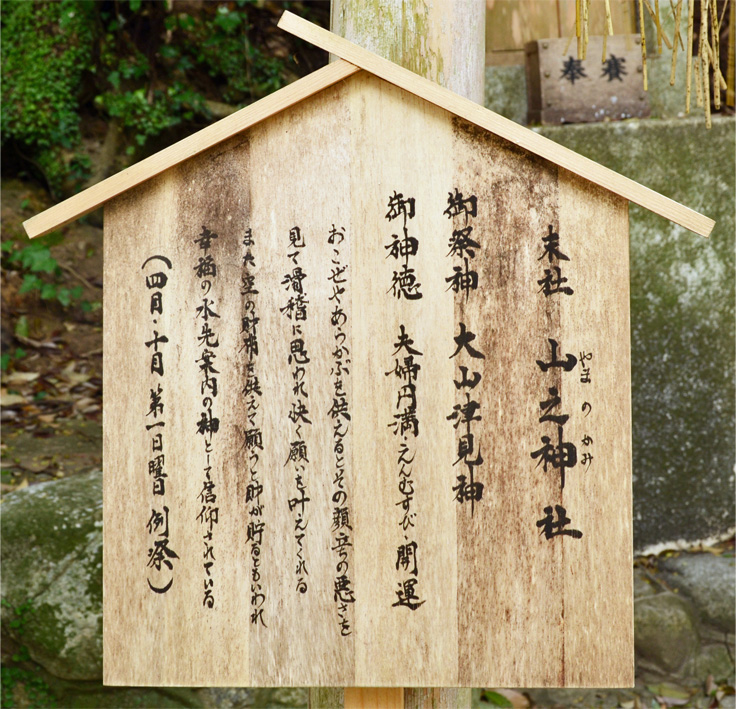 末社 山之神社
やまのかみ
御祭神 大山津見神
御神徳 夫婦円満えんむすび・開運
おこぜやあらかぶを供えるとその顔立ちの悪さを
見て滑稽に思われ快く願いを叶えてくれる
また空の財布を供えて願うと財が貯るともいわれ
幸福の水先案内の神として信仰されている
(四月・十月 第一日曜日 例祭)
奉賽